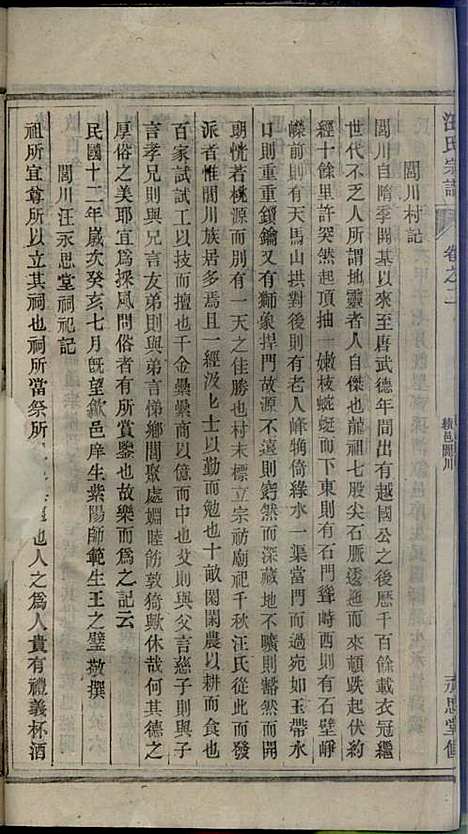 汪氏宗譜
卷之二
績邑閭川
永思堂修
閭川村記
閭川自隋季開基以來至唐武德年間出有越國公之後歷千百餘載衣冠繼
世代不乏人所謂地靈者人自傑也龍祖七股尖石脈逶迤而來頓跌起伏約
經十餘里許突然起頂抽一嫩枝蜿蜒而下東則有石門聳峙西則有石壁巉
巉前則有天馬山拱對後則有老人峰犄倚綠水一集當門而過宛如玉帶水
口則重重鎖鑰又有獅象捍門不遠則窈然而深藏地不曠則豁然而開
朗恍若桃源而別有一天之佳勝也村末標立宗祊廟祀千秋汪氏從此而發
派者惟閭川族居多焉且一經汲匕士以勤而勉也十畝閑閑農以耕而食也
百家試試工以技而擅也千金纍纍商以億而中也爻則與父言慈子則與子
言孝兄則與兄言友弟則與弟言悌鄉閭聚處嫺睦飭敦猗歟休哉何其德之
厚俗之美耶宜為採風問俗者有所賞鑒也故樂而為之記云
民國十二年歲次癸亥七月既望歙邑庠生紫陽師範生王之璧敬撰
閭川汪永思堂祠祀記
祖所宜尊所以立其祠也祠所當祭所 也人之為人貴有禮義杯酒